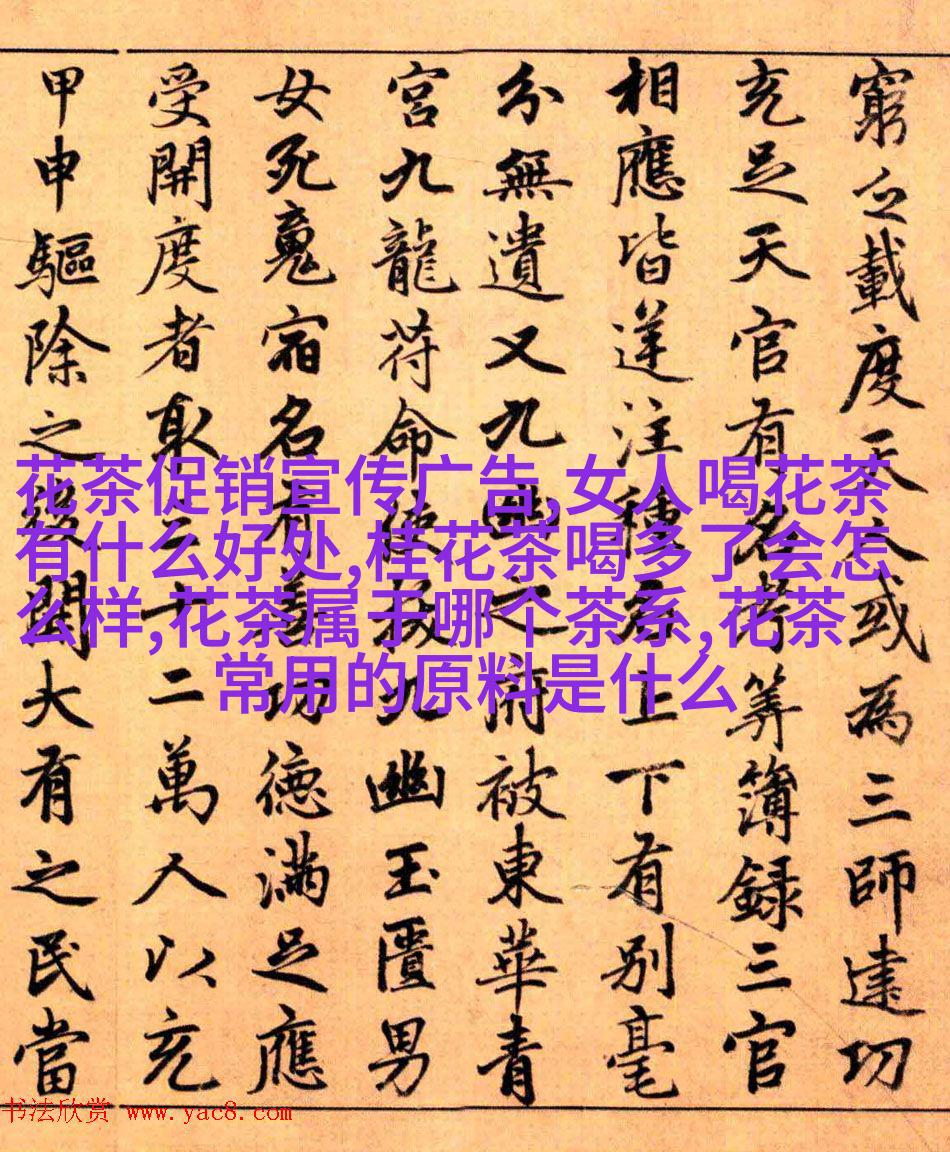 窮之載度天人或為三師功
充足天官有名考筭簿錄三官
相應皆逆注種上下有別毫
分無遺又九幽之府被東華青
宮九龍符命使拔九幽玉匱男
女死䰟宿名有功德滿足應
受開度者取三十二萬人以充
甲申驅除之後閒大有之民當
花茶促销宣传广告,女人喝花茶
有什么好处,桂花茶喝多了会怎
么样,花茶属于哪个茶系,花茶
常用的原料是什么
书法欣赏 www.yac8.com